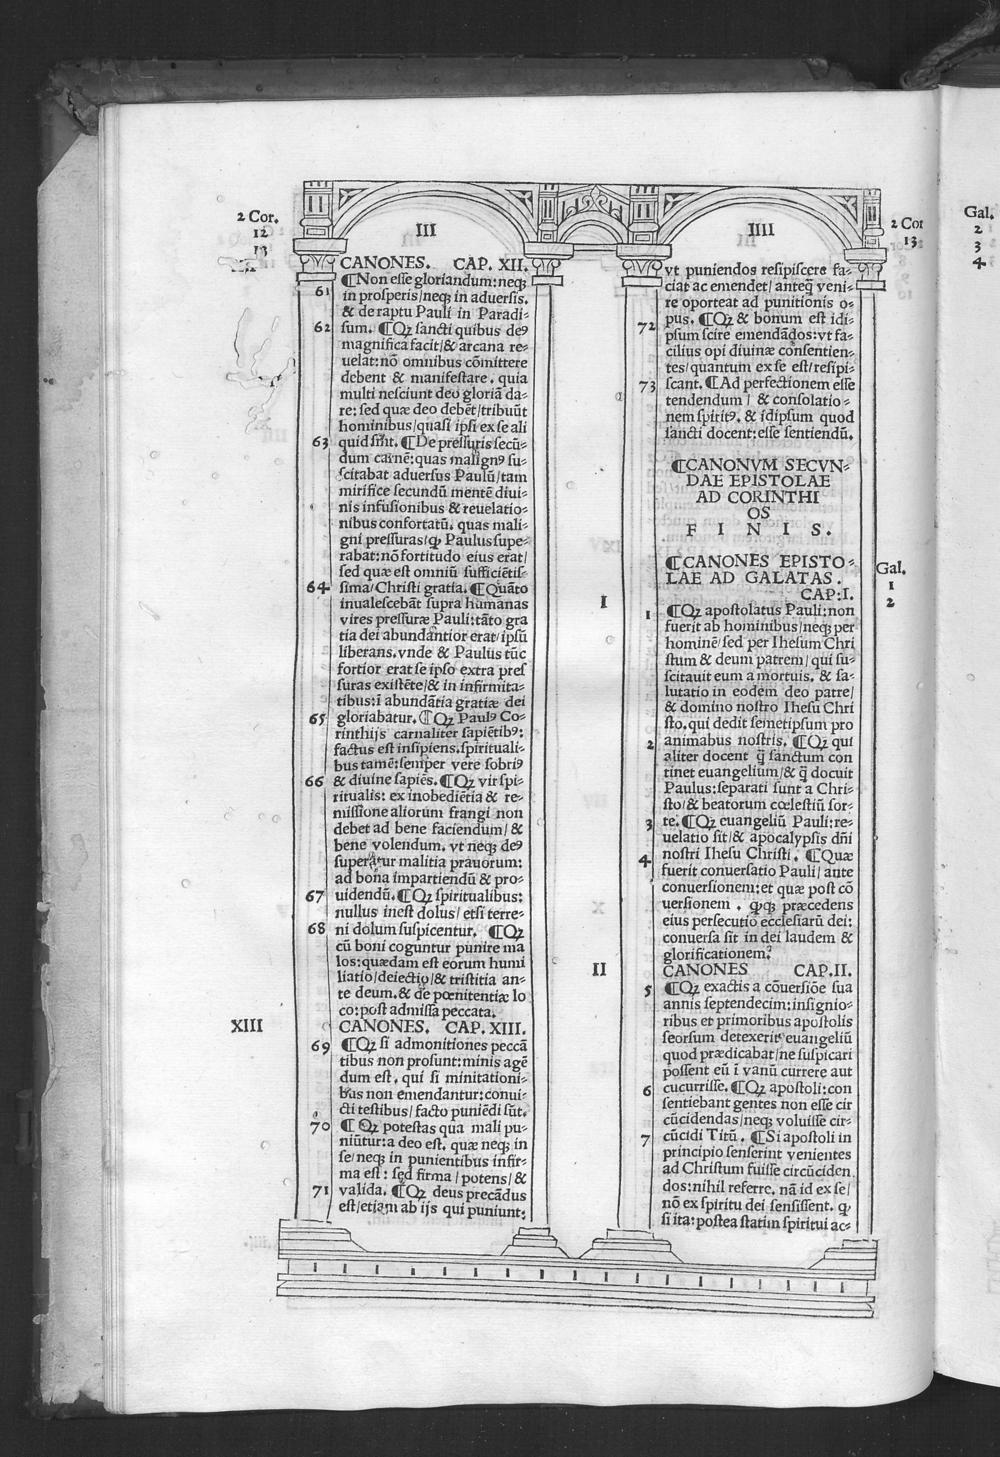 2 Cor.
12
13
III
CANONES. CAP. XII.
¶Non esse gloriandum: neqꝫ
61 in prosperis/neqꝫ in aduersis.
& de raptu Pauli in Paradi-
62 sum. ¶Qꝫ sancti quibus deꝰ
magnifica facit/& arcana re-
uelat: nō omnibus cōmittere
debent & manifestare. quia
multi nesciunt deo gloriā da-
re: sed quæ deo debēt/tribuūt
hominibus/quasi ipsi ex se ali
63 quid sint. ¶De pressuris secū-
dum carnē: quas malignꝰ su-
scitabat aduersus Paulū/tam
mirifice secundū mentē diui-
nis infusionibus & reuelatio-
nibus confortatū. quas mali-
gni pressuras/ꝙ Paulus supe-
rabat: nō fortitudo eius erat/
sed quæ est omniū sufficiētis-
64 sima/Christi gratia. ¶Quāto
inualescebāt supra humanas
vires pressuræ Pauli: tāto gra
tia dei abundantior erat/ipsū
liberans. vnde & Paulus tūc
fortior erat se ipso extra pres
suras existēte/& in infirmita-
tibus: ī abundātia gratiæ dei
65 gloriabatur. ¶Qꝫ Paulꝰ Co-
rinthijs carnaliter sapiētibꝰ:
factus est insipiens. spirituali-
bus tamē: semper vere sobriꝰ
66 & diuine sapiēs. ¶Qꝫ vir spi-
ritualis: ex inobediētia & re-
missione aliorum frangi non
debet ad bene faciendum/&
bene volendum. vt neqꝫ deꝰ
superatur malitia prauorum:
ad bona impartiendū & pro-
67 uidendū. ¶Qꝫ spiritualibus:
nullus inest dolus/etsi terre-
68 ni dolum suspicentur. ¶Qꝫ
cū boni coguntur punire ma
los: quædam est eorum humi
liatio/deiectio/& tristitia an-
te deum. & de pœnitentiæ lo
co: post admissa peccata.
XIII
CANONES. CAP. XIII.
69 ¶Qꝫ si admonitiones peccā
tibus non prosunt: minis agē
dum est. qui si minitationi-
bus non emendantur: conui-
cti testibus/facto puniēdi sūt.
70 ¶Qꝫ potestas qua mali pu-
niūtur: a deo est. quæ neqꝫ in
se/neqꝫ in punientibus infir-
ma est: sed firma/potens/&
71 valida. ¶Qꝫ deus precādus
est/etiam ab ijs qui puniunt:
IIII
2 Cor
13
vt puniendos resipiscere fa-
ciat ac emendet/anteq̄ veni-
re oporteat ad punitionis o-
72 pus. ¶Qꝫ & bonum est idi-
psum scire emendādos: vt fa-
cilius opi diuinæ consentien-
tes/quantum ex se est/resipi-
73 scant. ¶Ad perfectionem esse
tendendum/& consolatio-
nem spiritꝰ. & idipsum quod
sancti docent: esse sentiendū.
¶CANONVM SECVN-
DAE EPISTOLAE
AD CORINTHI
OS
F I N I S.
¶CANONES EPISTO-
LAE AD GALATAS.
Gal.
1
2
I
CAP: I.
1 ¶Qꝫ apostolatus Pauli: non
fuerit ab hominibus/neqꝫ per
hominē/sed per Ihesum Chri
stum & deum patrem/qui su-
scitauit eum a mortuis. & sa-
lutatio in eodem deo patre/
& domino nostro Ihesu Chri
sto. qui dedit semetipsum pro
2 animabus nostris. ¶Qꝫ qui
aliter docent q̄ sanctum con
tinet euangelium/& q̄ docuit
Paulus: separati sunt a Chri-
sto/& beatorum cœlestiū sor-
3 te. ¶Qꝫ euangeliū Pauli: re-
uelatio sit/& apocalypsis dñi
4 nostri Ihesu Christi. ¶Quæ
fuerit conuersatio Pauli/ante
conuersionem: et quæ post cō
uersionem. ꝙqꝫ præcedens
eius persecutio ecclesiarū dei:
conuersa sit in dei laudem &
glorificationem?
II
CANONES CAP. II.
5 ¶Qꝫ exactis a cōuersiōe sua
annis septendecim: insignio-
ribus et primoribus apostolis
seorsum detexerit euangeliū
quod prædicabat/ne suspicari
possent eū ī vanū currere aut
6 cucurrisse. ¶Qꝫ apostoli: con
sentiebant gentes non esse cir
cūcidendas/neqꝫ voluisse cir-
7 cūcidi Titū. ¶Si apostoli in
principio senserint venientes
ad Christum fuisse circūciden
dos: nihil referre. nā id ex se/
nō ex spiritu dei sensissent. ꝙ
si ita: postea statim spiritui ac-
Gal.
2
3
4